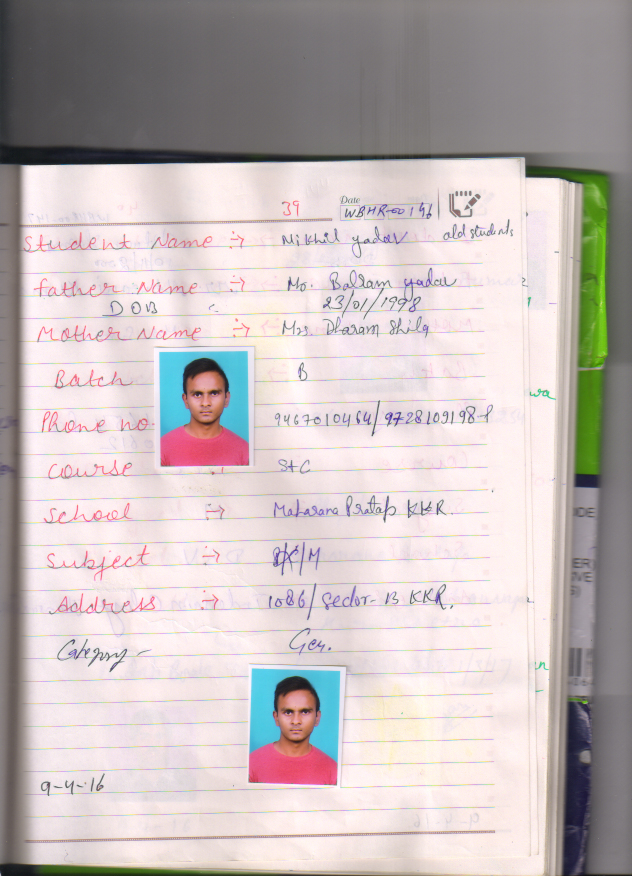 39
Date
WBHR-00146
old students
Student Name :- Nikhil yadav
father Name :- Mr. Balram yadav
DOB 23/01/1998
Mother Name :- Mrs. Dharam Shila
Batch B
Phone no. 9467010464/9728109198-f
course S+C
School :- Maharana Pratap KKR.
Subject :- P/C/M
Address :- 1086/Sector-13 KKR.
Category - Gen.
9-4-16